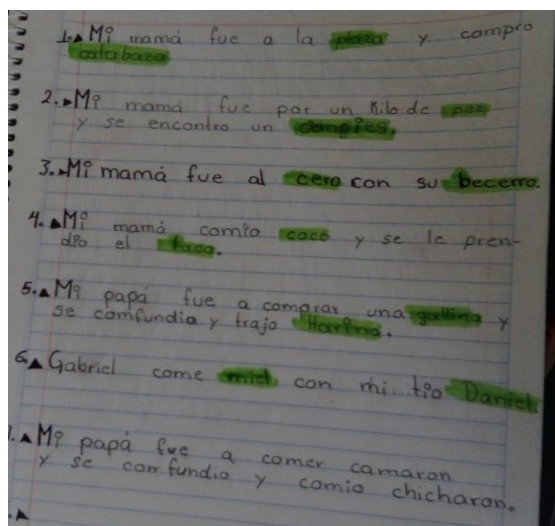 1. Mi mamá fue a la plaza y compro
calabaza
2. Mi mamá fue por un kilo de pez
y se encontro un cienpies.
3. Mi mamá fue al cero con su becerro.
4. Mi mamá comio coco y se le pren-
dio el foco.
5. Mi papá fue a comprar una gallina y
se comfundia y trajo Harina.
6. Gabriel come miel con mi tio Daniel
7. Mi papá fue a comer camaron
y se comfundio y comio chicharon.